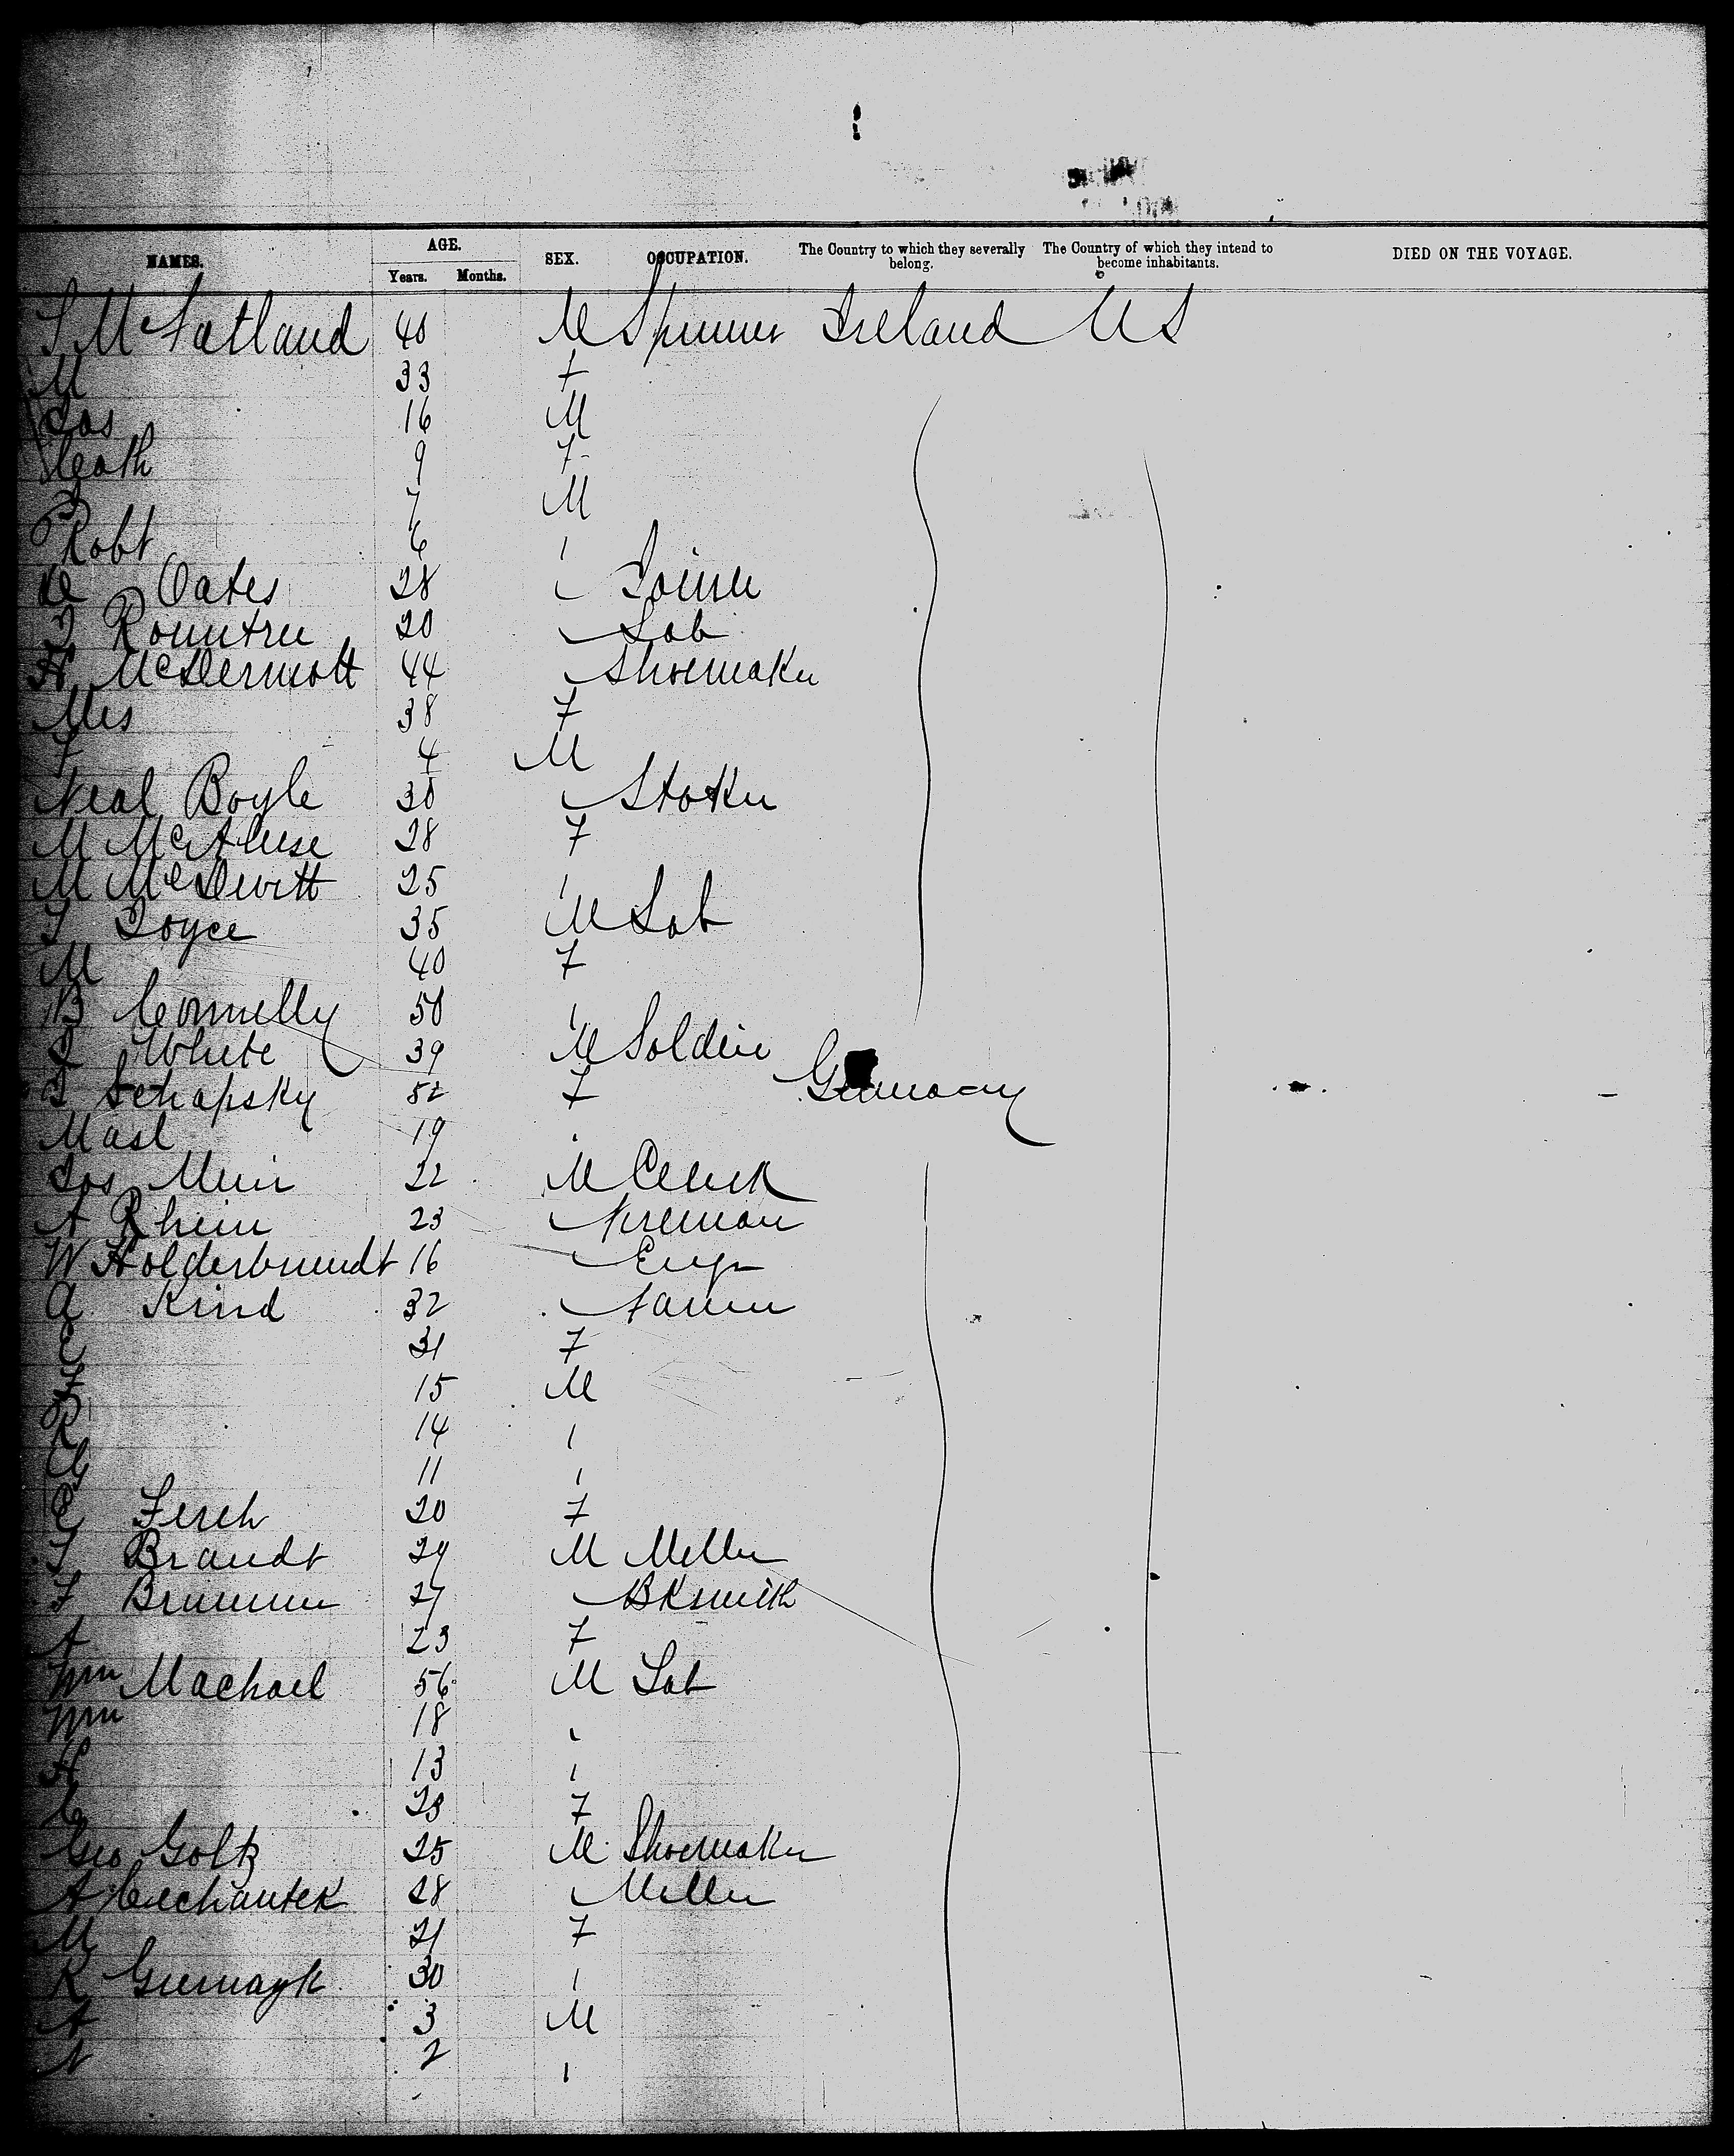 NAMES. AGE. SEX. OCCUPATION. The Country to which they severally belong. The Country of which they intend to become inhabitants. DIED ON THE VOYAGE.
Years. Months.
40 M Spinner Ireland US
M 33 F
Jos 16 M
Cath 9 F
7 M
Robt 6 "
Oates 28 " Joiner
Rountree 20 " Lab
H McDermott 44 " Shoemaker
Mrs 38 F
4 M
Neal Boyle 30 " Stoker
M 28 F
M McDevitt 25 "
T Joyce 35 M Lab
M 40 F
B Connelly 50 "
White 39 M Soldier
B Schapsky 52 F Germany
19 "
Jos Muir 22 M Clerk
A Rhein 23 " Fireman
W 16 " Engr
A Kind 32 " Farmer
E 31 F
15 M
R 14 "
11 "
E Ferch 20 F
T Brandt 29 M Miller
F 27 " Bksmith
A 23 F
Wm Machael 56 M Lab
Wm 18 "
H 13 "
C 28 F
Geo Goltz 25 M Shoemaker
A 28 " Miller
M 21 F
K 30 "
A 3 M
2 "